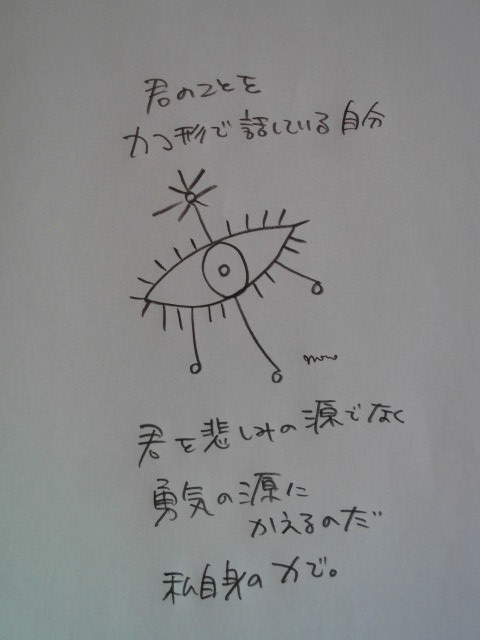 君のことを
カコ形で話している自分
君を悲しみの源でなく
勇気の源に
かえるのだ
私自身の力で。